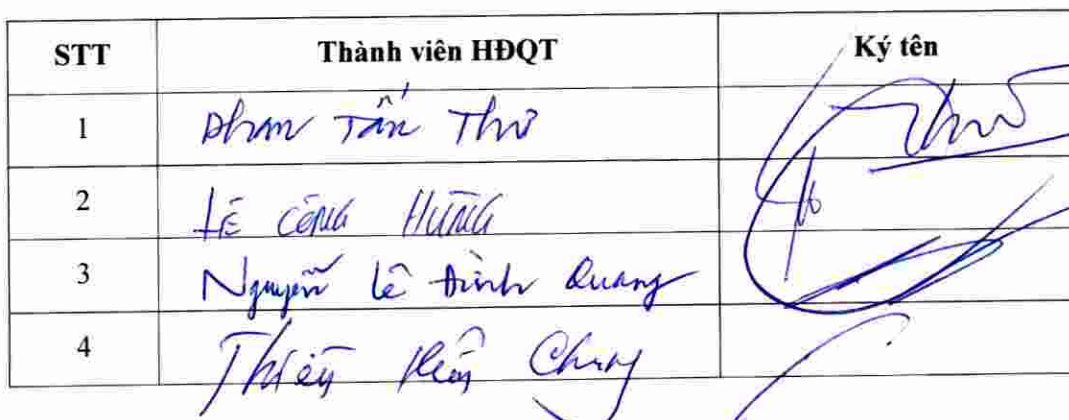 STT Thành viên HĐQT Ký tên
1 Phan Tấn Thư
2 LÊ CÔNG HÙNG
3 Nguyễn Lê Đình Quang
4 Chung